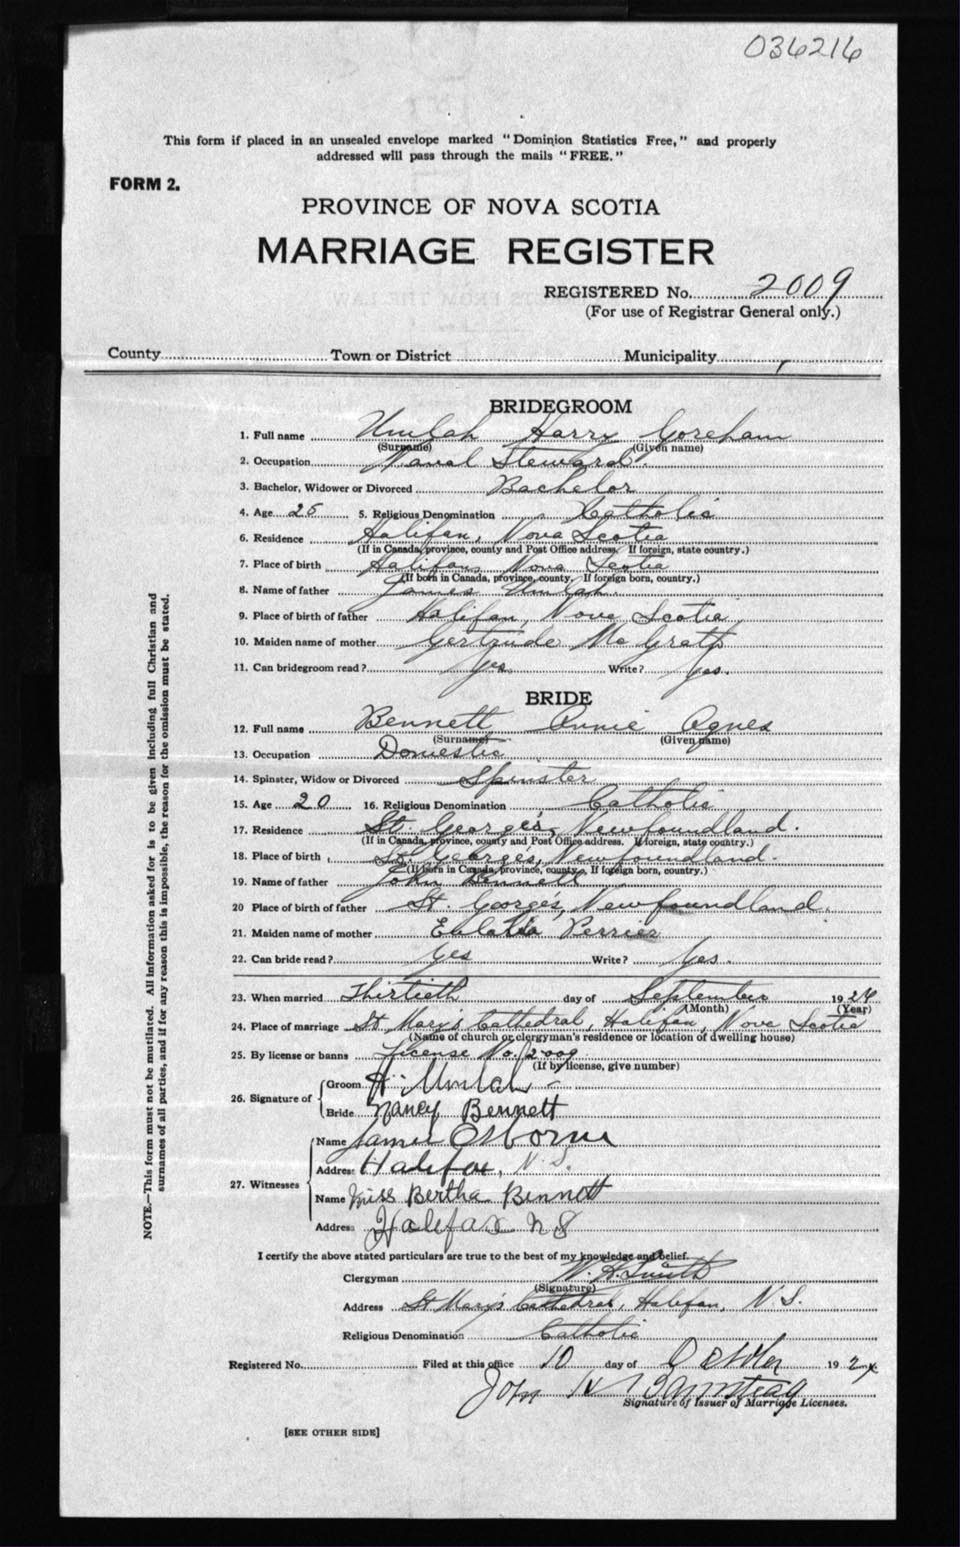 036216
This form if placed in an unsealed envelope marked "Dominion Statistics Free," and properly
addressed will pass through the mails "FREE."
FORM 2.
PROVINCE OF NOVA SCOTIA
MARRIAGE REGISTER
REGISTERED No. 2009
(For use of Registrar General only.)
County Town or District Municipality
BRIDEGROOM
1. Full name Umlah Harry Goreham
(Surname) (Given name)
2. Occupation Naval Steward.
3. Bachelor, Widower or Divorced Bachelor
4. Age 25 5. Religious Denomination Catholic
6. Residence Halifax, Nova Scotia
(If in Canada, province, county and Post Office address. If foreign, state country.)
7. Place of birth Halifax, Nova Scotia
(If born in Canada, province, county. If foreign born, country.)
8. Name of father James Umlah.
9. Place of birth of father Halifax, Nova Scotia
10. Maiden name of mother Gertrude Mc Grath
11. Can bridegroom read? Yes. Write? Yes.
BRIDE
12. Full name Bennett Annie Agnes
(Surname) (Given name)
13. Occupation Domestic
14. Spinster, Widow or Divorced Spinster
15. Age 20 16. Religious Denomination Catholic
17. Residence St. George's, Newfoundland.
(If in Canada, province, county and Post Office address. If foreign, state country.)
18. Place of birth St. George's, Newfoundland.
(If born in Canada, province, county. If foreign born, country.)
19. Name of father John Bennett
20 Place of birth of father St. Georges, Newfoundland.
21. Maiden name of mother Perrier
22. Can bride read? Yes Write? Yes.
23. When married Thirtieth day of September 1924
(Month) (Year)
24. Place of marriage St Mary's Cathedral, Halifax, Nova Scotia
(Name of church or clergyman's residence or location of dwelling house)
25. By license or banns License No. 2009
(If by license, give number)
26. Signature of Groom H. Umlah
Bride Nancy Bennett
27. Witnesses Name James Osborne
Address Halifax, N.S.
Name Miss Bertha Bennett
Address Halifax N S
I certify the above stated particulars are true to the best of my knowledge and belief.
Clergyman W. H. Smith
(Signature)
Address St Mary's Cathedral, Halifax, N.S.
Religious Denomination Catholic
Registered No. Filed at this office 10 day of October 1924
John
Signature of Issuer of Marriage Licenses.
[SEE OTHER SIDE]
NOTE.—This form must not be mutilated. All information asked for is to be given including full Christian and
surnames of all parties, and if for any reason this is impossible, the reason for the omission must be stated.